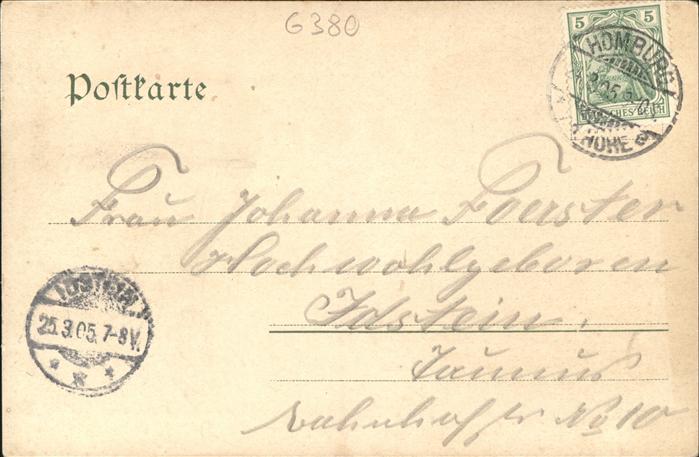 G380
5 5
DEUTSCHES REICH
HOMBURG
HÖHE
Postkarte
Frau Johanna Foerster
Hochwohlgeboren
Idstein.
Taunus
Bahnhofstr No 10
IDSTEIN
25.3.05. 7-8V.